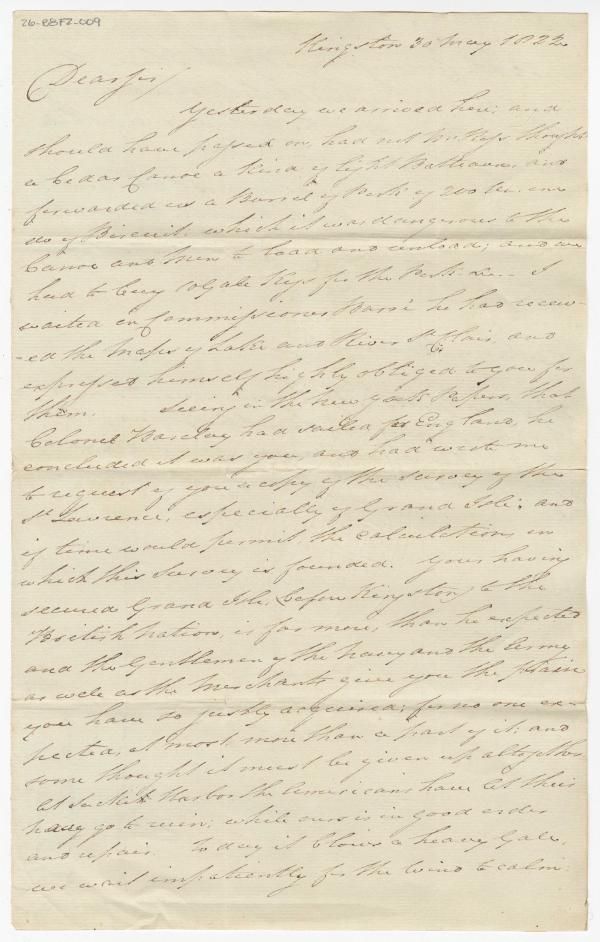 26-BBFZ-009
Kingston 30 May 1822
Dear Sir/
Yesterday we arrived here; and
should have passed on, had not Mr. Hays thought
a Cedar Canoe a kind of light Batteau, and
forwarded us a Barrel of Pork of 200 lbs. one
do of Biscuit, which it was dangerous to the
Canoe and Men to load and unload; and we
had to buy 10 Gale Kegs for the Pork &c. I
waited on Commissioner Barrie he had receiv-
-ed the Maps of Lake and River St Clair, and
expressed himself highly obliged to you for
them. Seeing in the New York Papers, that
Colonel Barclay had sailed for England, he
concluded it was you, and had wrote me
to request of you a copy of the survey of the
St Lawrence, especially of Grand Isle; and
if time would permit the calculations on
which this Survey is founded. Your having
secured Grand Isle, (before Kingston) to the
British Nation, is far more, than he expected
and the Gentlemen of the Navy and the Army
as well as the Merchants give you the
you have so justly acquired; for no one ex-
pected, at most more than a part of it; and
some thought it must be given up altogether
At Sackets Harbor the Americans have let their
Navy go to ruin; while ours is in good order
and repair. To day it blows a heavy Gale,
we wait impatiently for the Wind to calm